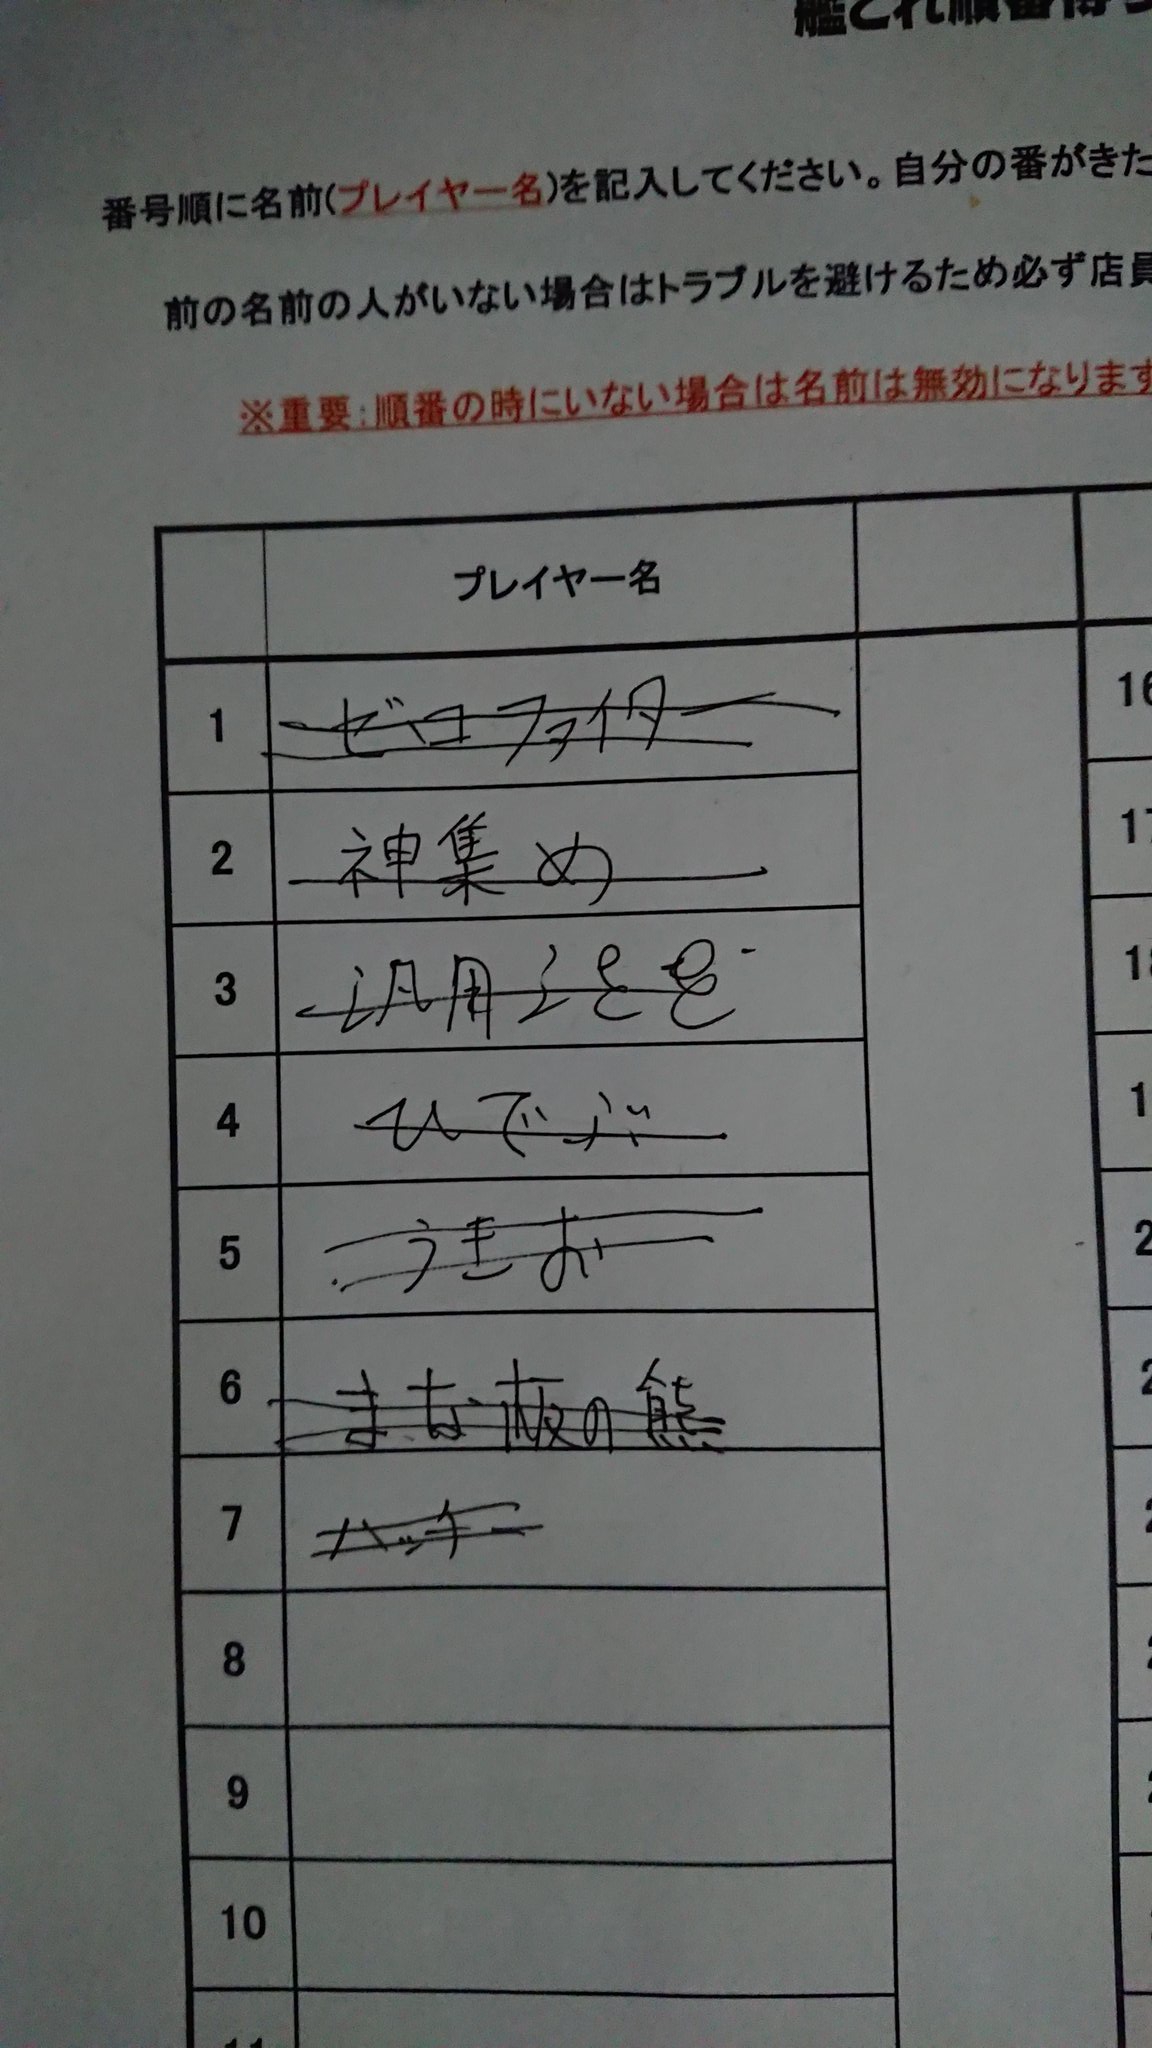 艦これ順番待ち
番号順に名前(プレイヤー名)を記入してください。自分の番がきた
前の名前の人がいない場合はトラブルを避けるため必ず店員
※重要:順番の時にいない場合は名前は無効になります
プレイヤー名
1 ゼロファイター
16
2 神集め
17
3 汎用
18
4 ひでぶ
5 うきお
6 まな板の熊
7 ハッチー
8
9
10
11